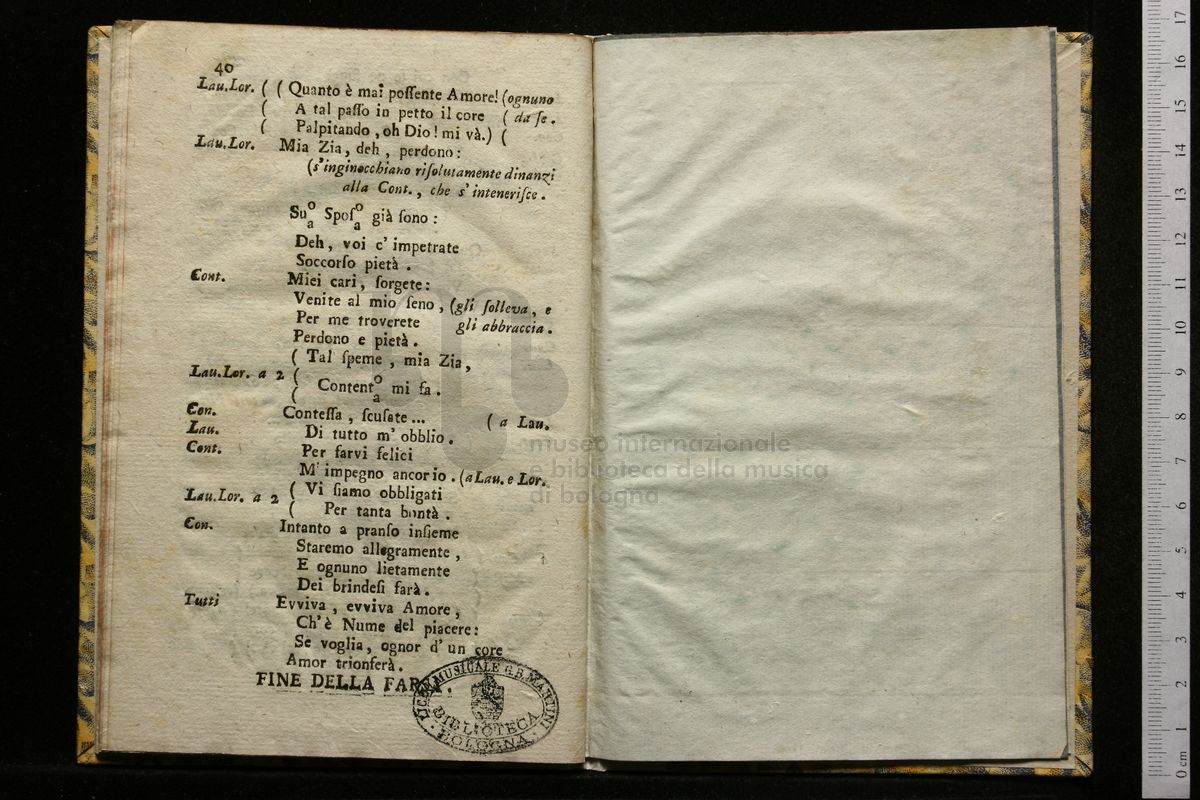 40
Lau.Lor. ( ( Quanto è mai poſſente Amore! (ognuno
( A tal paſſo in petto il core ( da ſe.
( Palpitando, oh Dio! mi và.) (
Lau.Lor. Mia Zia, deh, perdono:
(s'inginocchiano riſolutamente dinanzi
alla Cont., che s'intenerifce.
Su o/a Spoſ o/a già ſono:
Deh, voi c' impetrate
Soccorſo pietà.
Cont. Miei cari, ſorgete:
Venite al mio ſeno, (gli ſolleva, e
Per me troverete gli abbraccia.
Perdono e pietà.
( Tal ſpeme, mia Zia,
Lau.Lor. a 2 (
( Content o/a mi fa.
Con. Conteſſa, ſcuſate... ( a Lau.
Lau. Di tutto m' obblio.
Cont. Per farvi felici
M' impegno ancor io. (a Lau. e Lor.
Lau.Lor. a 2 ( Vi ſiamo obbligati
( Per tanta bontà.
Con. Intanto a pranſo inſieme
Staremo allegramente,
E ognuno lietamente
Dei brindeſi farà.
Tutti Evviva, evviva Amore,
Ch'è Nume del piacere:
Se voglia, ognor d' un core
Amor trionferà.
FINE DELLA FARSA.
LICEO MUSICALE G.B. MARTINI
BIBLIOTECA
· BOLOGNA ·
museo internazionale
e biblioteca della musica
di bologna
0 cm 1 2 3 4 5 6 7 8 9 10 11 12 13 14 15 16 17